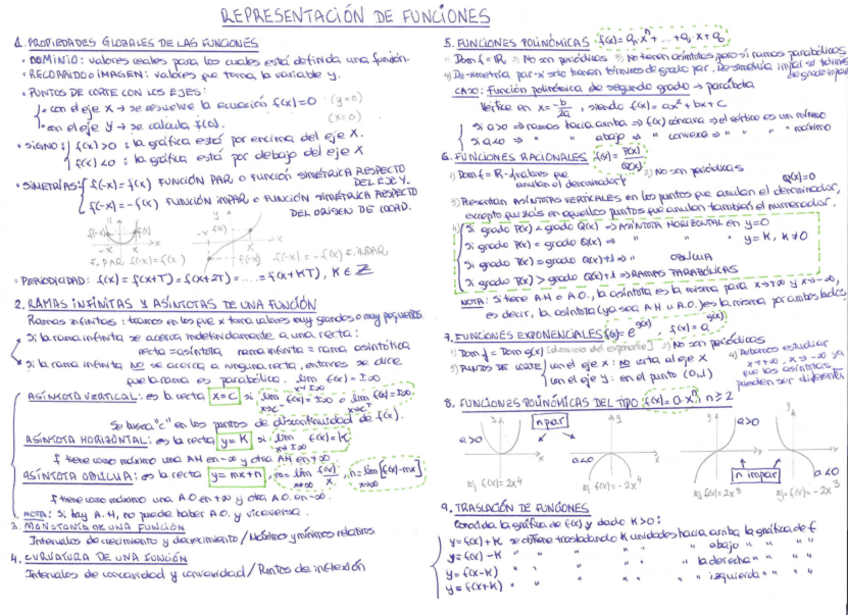 REPRESENTACIÓN DE FUNCIONES
1. PROPIEDADES GLOBALES DE LAS FUNCIONES
· DOMINIO: valores reales para los cuales está definida una función.
· RECORRIDO o IMAGEN: valores que toma la variable y.
· PUNTOS DE CORTE CON LOS EJES:
· con el eje X → se resuelve la ecuación f(x)=0 (y=0)
· con el eje Y → se calcula f(0). (x=0)
· SIGNO: f(x)>0 : la gráfica está por encima del eje X.
f(x)<0 : la gráfica está por debajo del eje X
· SIMETRÍAS: f(-x)=f(x) FUNCIÓN PAR o función SIMÉTRICA RESPECTO DEL EJE Y.
f(-x)=-f(x) FUNCIÓN IMPAR o FUNCIÓN SIMÉTRICA RESPECTO
DEL ORIGEN DE COORD.
F. PAR f(-x)=f(x)
f(-x) = -f(x) F. IMPAR
· PERIODICIDAD: f(x)=f(x+T)=f(x+2T)=....=f(x+KT), K ∈ Z
2. RAMAS INFINITAS Y ASÍNTOTAS DE UNA FUNCIÓN
Ramas infinitas: tramos en los que x toma valores muy grandes o muy pequeños.
Si la rama infinita se acerca indefinidamente a una recta:
recta = asíntota rama infinita = rama asintótica
Si la rama infinita NO se acerca a ninguna recta, entonces se dice
que la rama es parabólica. lim x→±∞ f(x)=±∞
ASÍNTOTA VERTICAL: es la recta x=c si lim x→c⁻ f(x)=±∞ o lim x→c⁺ f(x)=±∞
Se busca "c" en los puntos de discontinuidad de f(x).
ASÍNTOTA HORIZONTAL: es la recta y=K si lim x→±∞ f(x)=K
f tiene como máximo una AH en -∞ y otra AH en +∞.
ASÍNTOTA OBLICUA: es la recta y=mx+n, m=lim x→∞ f(x)/x, n=lim x→∞ [f(x)-mx]
f tiene como máximo una A.O en +∞ y otra A.O. en -∞.
NOTA: Si hay A.H, no puede haber A.O. y viceversa.
3. MONOTONÍA DE UNA FUNCIÓN
Intervalos de crecimiento y decrecimiento / Máximos y mínimos relativos
4. CURVATURA DE UNA FUNCIÓN
Intervalos de concavidad y convexidad / Puntos de inflexión
5. FUNCIONES POLINÓMICAS f(x)=aₙxⁿ+...+a₁·x+a₀
1) Dom f = R 2) No son periódicas 3) No tienen asíntotas pero sí ramas parabólicas
4) De simetría par si solo tienen términos de grado par. De simetría impar si términos de grado impar
CASO: función polinómica de segundo grado → parábola
Vértice en x=-b/2a, siendo f(x)=ax²+bx+c
Si a>0 ⇒ ramas hacia arriba ⇒ f(x) cóncava ⇒ el vértice es un mínimo
Si a<0 ⇒ " " abajo ⇒ " convexa ⇒ " " " máximo
6. FUNCIONES RACIONALES f(x)=P(x)/Q(x)
1) Dom f = R - {valores que anulan el denominador} 2) No son periódicas
Q(x)=0
3) Presentan ASÍNTOTAS VERTICALES en los puntos que anulan el denominador,
excepto quizás en aquellos puntos que anulan también el numerador.
4) Si grado P(x) < grado Q(x) ⇒ ASÍNTOTA HORIZONTAL en y=0
Si grado P(x) = grado Q(x) ⇒ " " y=K, K≠0
Si grado P(x) = grado Q(x)+1 ⇒ " OBLICUA
Si grado P(x) > grado Q(x)+1 ⇒ RAMAS PARABÓLICAS
NOTA: Si tiene A.H o A.O., la asíntota es la misma para x→+∞ y x→-∞,
es decir, la asíntota (ya sea A.H u A.O.) es la misma por ambos lados.
7. FUNCIONES EXPONENCIALES f(x)=e^g(x), f(x)=a^g(x)
1) Dom f = Dom g(x) [dominio del exponente] 2) No son periódicas
3) PUNTOS DE CORTE con el eje X: no corta al eje X
con el eje Y: en el punto (0,1)
4) Debemos estudiar x→+∞, x→-∞ ya que las asíntotas pueden ser diferentes
8. FUNCIONES POLINÓMICAS DEL TIPO: f(x)=a·xⁿ, n≥2
n par
a>0
a<0
a>0
n impar
a<0
Ej. f(x)=2x⁴
Ej. f(x)=-2x⁴
Ej. f(x)=2x³
Ej. f(x)=-2x³
9. TRASLACIÓN DE FUNCIONES
Conocida la gráfica de f(x) y dado K>0:
y=f(x)+K se obtiene trasladando K unidades hacia arriba la gráfica de f
y=f(x)-K " " " " abajo " " " "
y=f(x-K) " " " " la derecha " " " "
y=f(x+K) " " " " izquierda " " " "